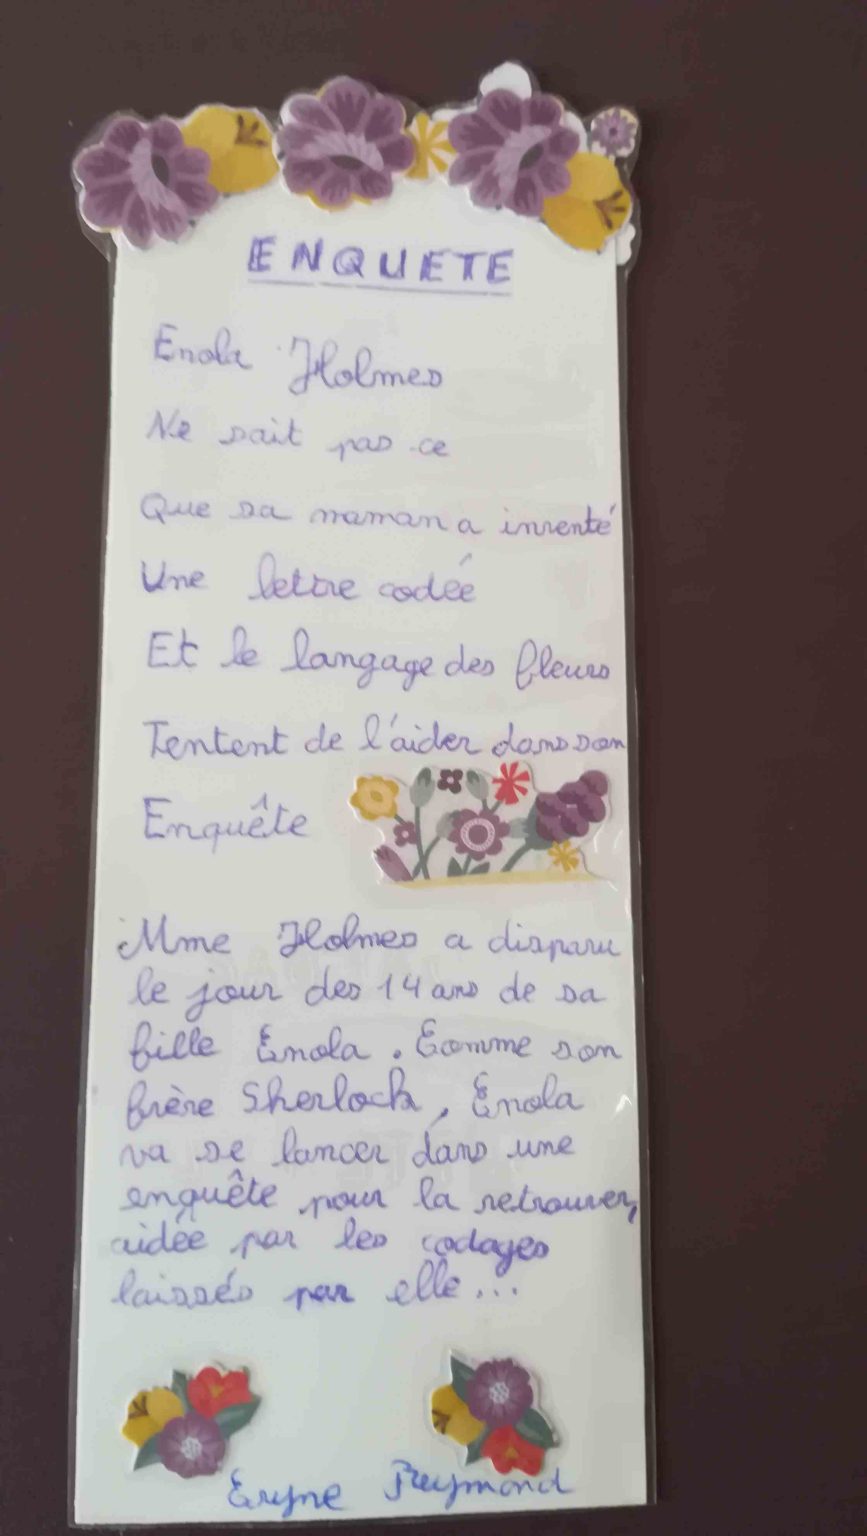 ENQUETE
Enola Holmes
Ne sait pas ce
Que sa maman a inventé
Une lettre codée
Et le langage des fleurs
Tentent de l'aider dans son
Enquête
Mme Holmes a disparu
le jour des 14 ans de sa
fille Enola. Comme son
frère Sherlock, Enola
va se lancer dans une
enquête pour la retrouver,
aidée par les codages
laissés par elle...
Eryne Reymond